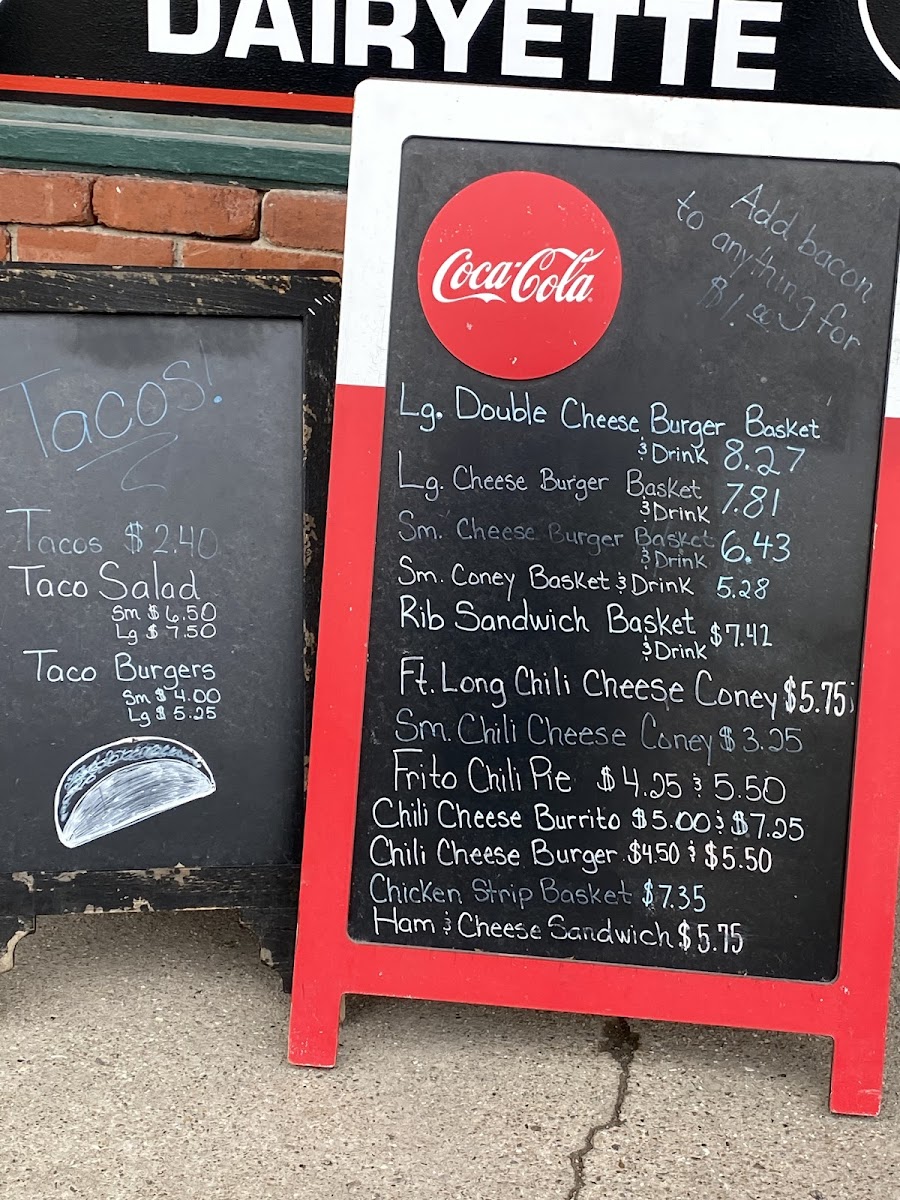 DAIRYETTE
Tacos!
Tacos $2.40
Taco Salad
Sm $6.50
Lg $7.50
Taco Burgers
Sm $4.00
Lg $5.25
Coca-Cola
Add bacon
to anything for
$1.00
Lg. Double Cheese Burger Basket
& Drink 8.27
Lg. Cheese Burger Basket
& Drink 7.81
Sm. Cheese Burger Basket
& Drink 6.43
Sm. Coney Basket & Drink 5.28
Rib Sandwich Basket
& Drink $7.42
Ft. Long Chili Cheese Coney $5.75
Sm. Chili Cheese Coney $3.25
Frito Chili Pie $4.25 & 5.50
Chili Cheese Burrito $5.00 & $7.25
Chili Cheese Burger $4.50 & $5.50
Chicken Strip Basket $7.35
Ham & Cheese Sandwich $5.75